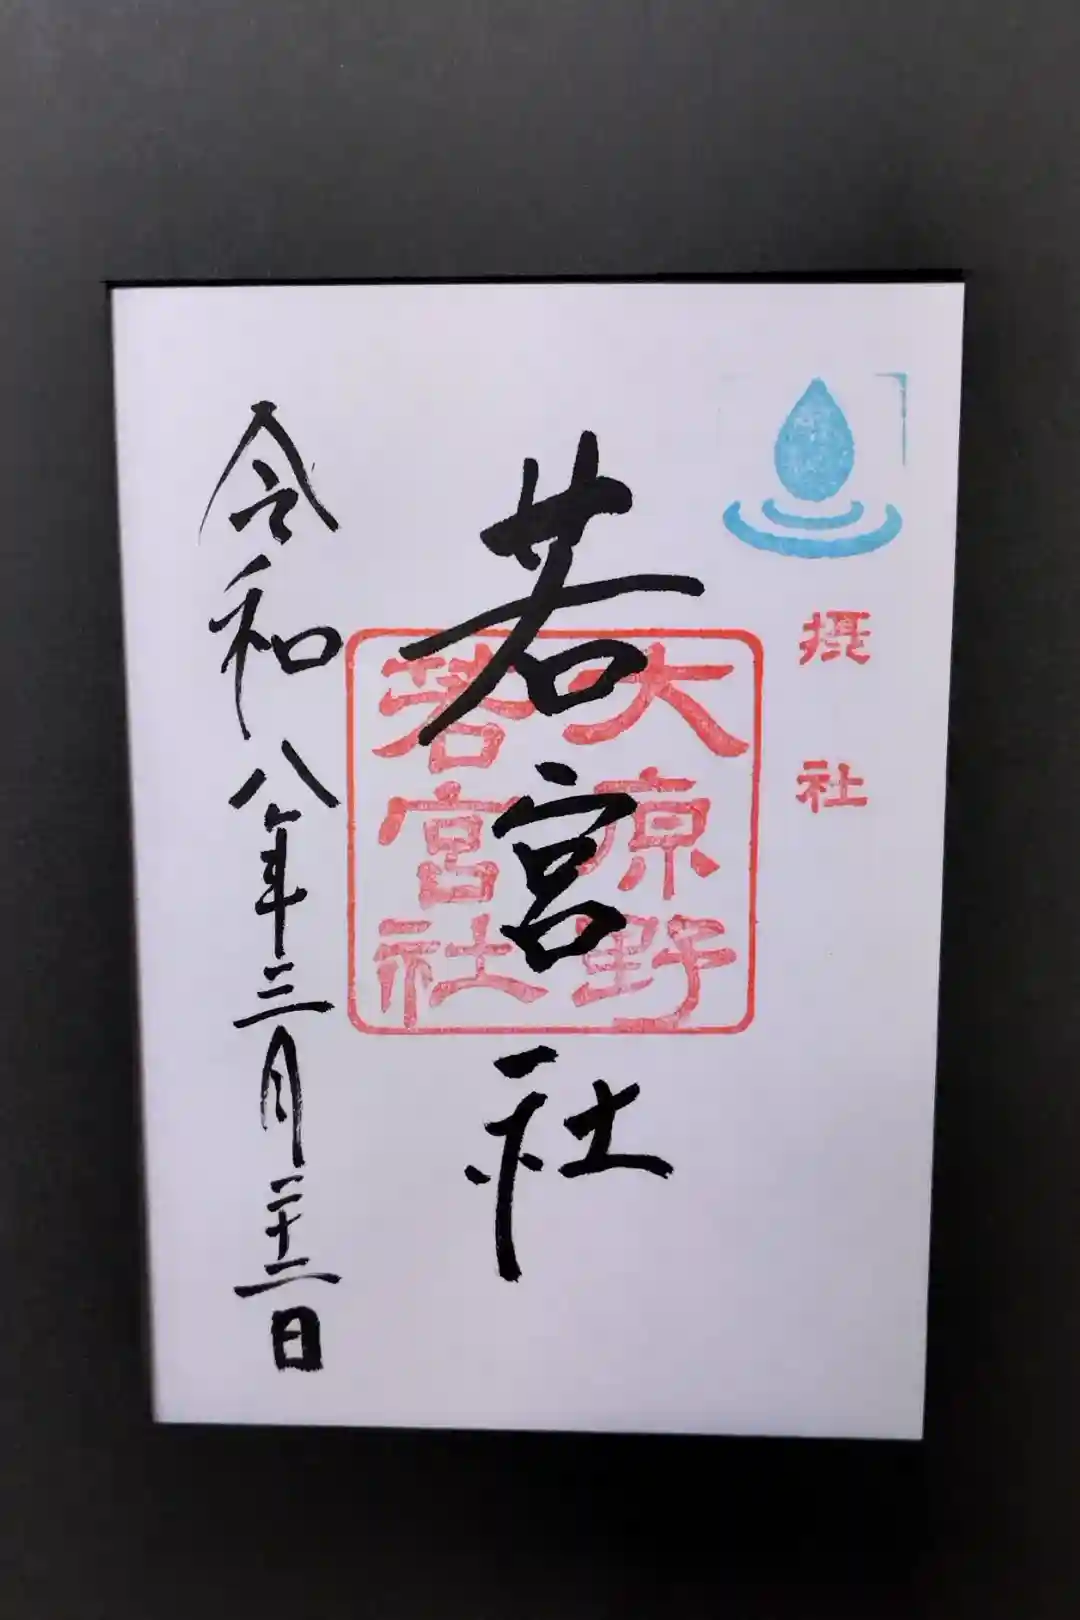 摂社
若宮社
大原野
若宮社
令和八年三月二十二日